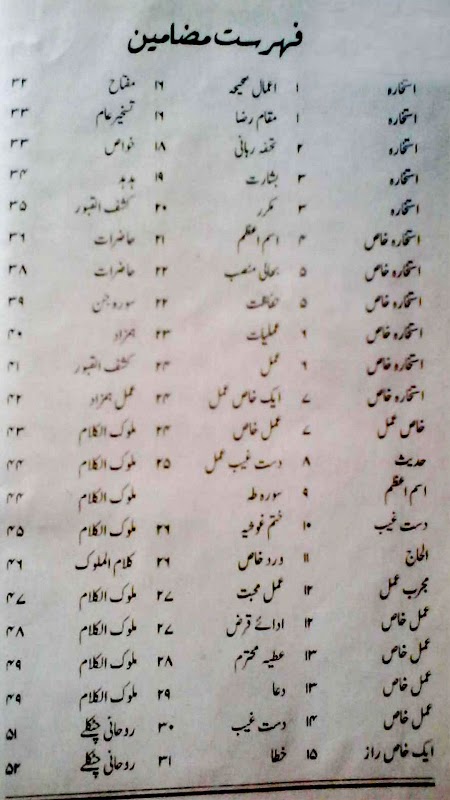 فہرست مضامین
استخارہ ۱ اعمال صحیحہ ۱۶ مفتاح ۳۲
استخارہ ۱ مقام رضا ۱۶ تسخیر عام ۳۳
استخارہ ۲ تحفہ ربانی ۱۸ خواص ۳۳
استخارہ ۳ بشارت ۱۹ ہدہد ۳۴
استخارہ ۳ مکرر ۲۰ کشف القبور ۳۵
استخارہ خاص ۴ اسم اعظم ۲۱ حاضرات ۳۶
استخارہ خاص ۵ بحالی منصب ۲۲ حاضرات ۳۸
استخارہ خاص ۵ حفاظت ۲۲ سورہ جن ۳۹
استخارہ خاص ۶ عملیات ۲۳ ہمزاد ۴۰
استخارہ خاص ۶ عمل ۲۴ کشف القبور ۴۱
استخارہ خاص ۷ ایک خاص عمل ۲۴ عمل ہمزاد ۴۲
خاص عمل ۷ عمل خاص ۲۴ ملوک الکلام ۴۳
حدیث ۸ دست غیب عمل ۲۵ ملوک الکلام ۴۴
اسم اعظم ۹ سورہ طہ ملوک الکلام ۴۴
دست غیب ۱۰ ختم غوثیہ ۲۶ ملوک الکلام ۴۵
الحاج ۱۱ ورد خاص ۲۶ کلام الملوک ۴۶
مجرب عمل ۱۲ عمل محبت ۲۷ ملوک الکلام ۴۷
عمل خاص ۱۲ ادائے قرض ۲۷ ملوک الکلام ۴۸
عمل خاص ۱۳ عطیہ محترم ۲۸ ملوک الکلام ۴۹
عمل خاص ۱۳ دعا ۲۹ ملوک الکلام ۴۹
عمل خاص ۱۴ دست غیب ۳۰ روحانی چٹکلے ۵۱
ایک خاص راز ۱۵ خطا ۳۱ روحانی چٹکلے ۵۲